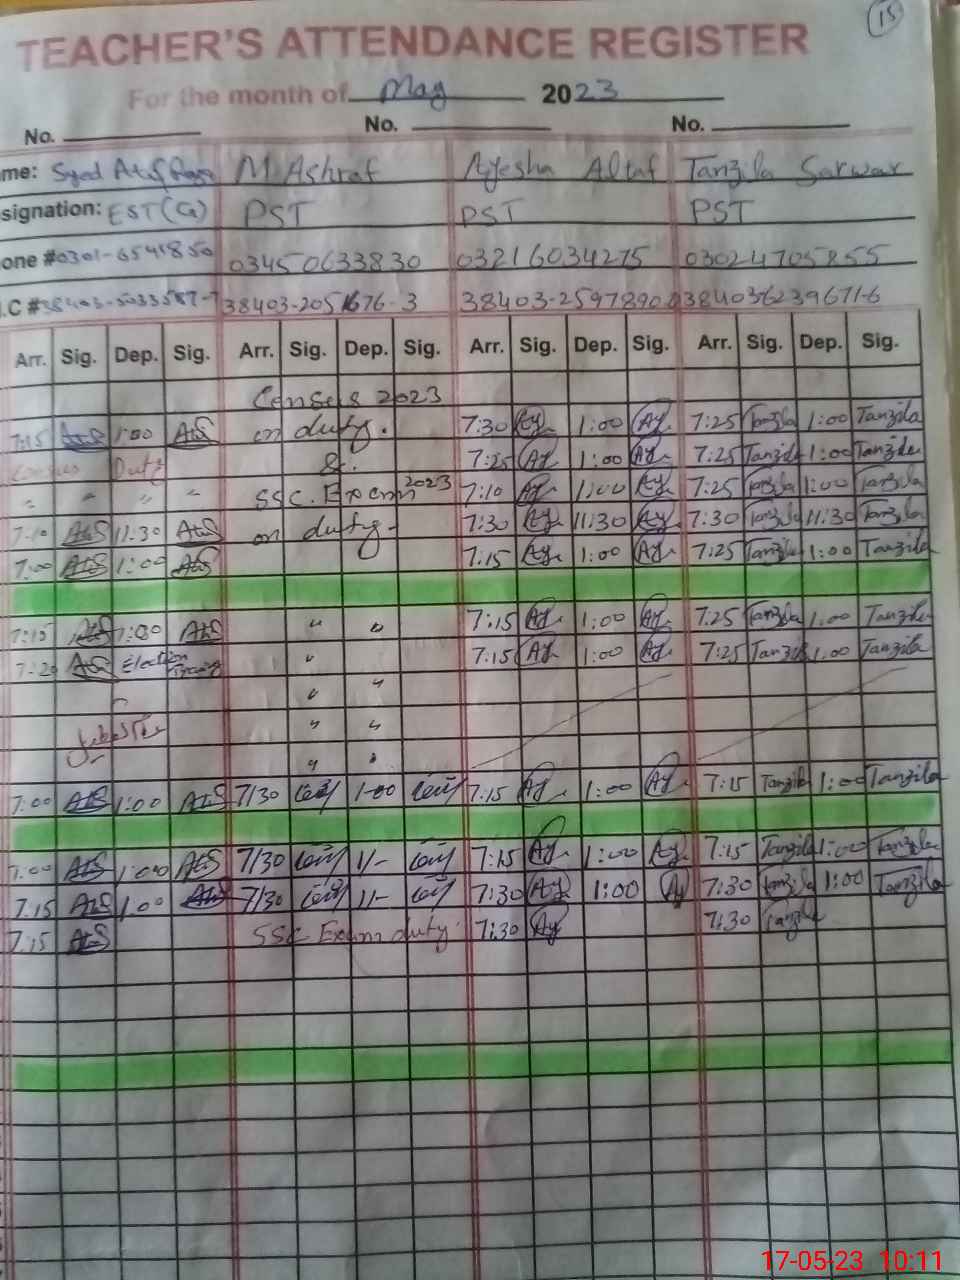 15
TEACHER'S ATTENDANCE REGISTER
For the month of May 2023
No. No. No.
me: Syed Atif M Ashraf Ayesha Altaf Tanzila Sarwar
signation: EST (G) PST PST PST
one # 03450633830 03216034275 03024705855
.C # 38403-2051676-3
Arr. Sig. Dep. Sig. Arr. Sig. Dep. Sig. Arr. Sig. Dep. Sig. Arr. Sig. Dep. Sig.
Census 2023
7:15 AtS 1:00 AtS on duty. 7:30 Ay 1:00 Ay 7:25 Tanzila 1:00 Tanzila
Census Duty &. 7:25 Ay 1:00 Ay 7:25 Tanzila 1:00 Tanzila
" " " " SSC. Exam 2023 7:10 Ay 1:00 Ay 7:25 Tanzila 1:00 Tanzila
7:10 AtS 11:30 AtS on duty- 7:30 Ay 11:30 Ay 7:30 Tanzila 11:30 Tanzila
7:00 AtS 1:00 AtS 7:15 Ay 1:00 Ay 7:25 Tanzila 1:00 Tanzila
7:15 AtS AtS " " 7:15 Ay 1:00 Ay 7:25 Tanzila 1:00 Tanzila
7:20 AtS Election " 7:15 Ay 1:00 Ay 7:25 Tanzila 1:00 Tanzila
" "
" "
" "
7:00 AtS 1:00 AtS 7/30 1-00 7:15 Ay 1:00 Ay 7:15 Tanzila 1:00 Tanzila
7:00 AtS 1:00 AtS 7/30 1/- 7:15 Ay 1:00 Ay 7:15 Tanzila 1:00 Tanzila
7:15 AtS 1:00 AtS 7/30 1/- 7:30 Ay 1:00 Ay 7:30 Tanzila 1:00 Tanzila
7:15 AtS SSC Exam duty 7:30 Ay 7:30 Tanzila
17-05-23 10:11